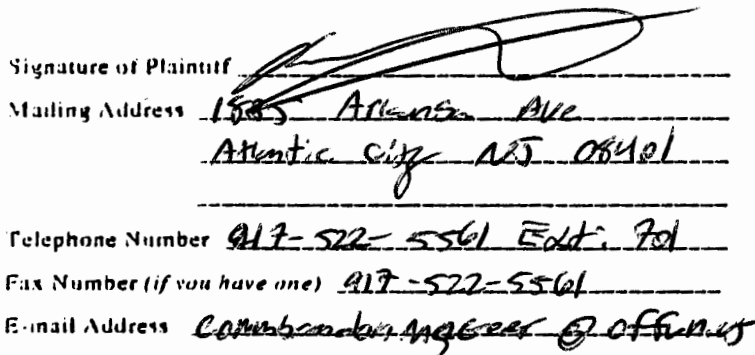 Signature of Plaintiff
Mailing Address Ave
Atlantic City NJ 08401
Telephone Number 917-522-5561 Ext. 701
Fax Number (if you have one) 917-522-5561
E-mail Address @